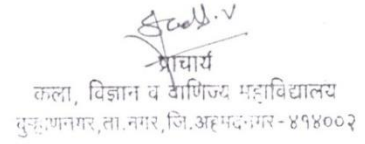 प्राचार्य
कला, विज्ञान व वाणिज्य महाविद्यालय
ता.नगर,जि.अहमदनगर - ४१४००२